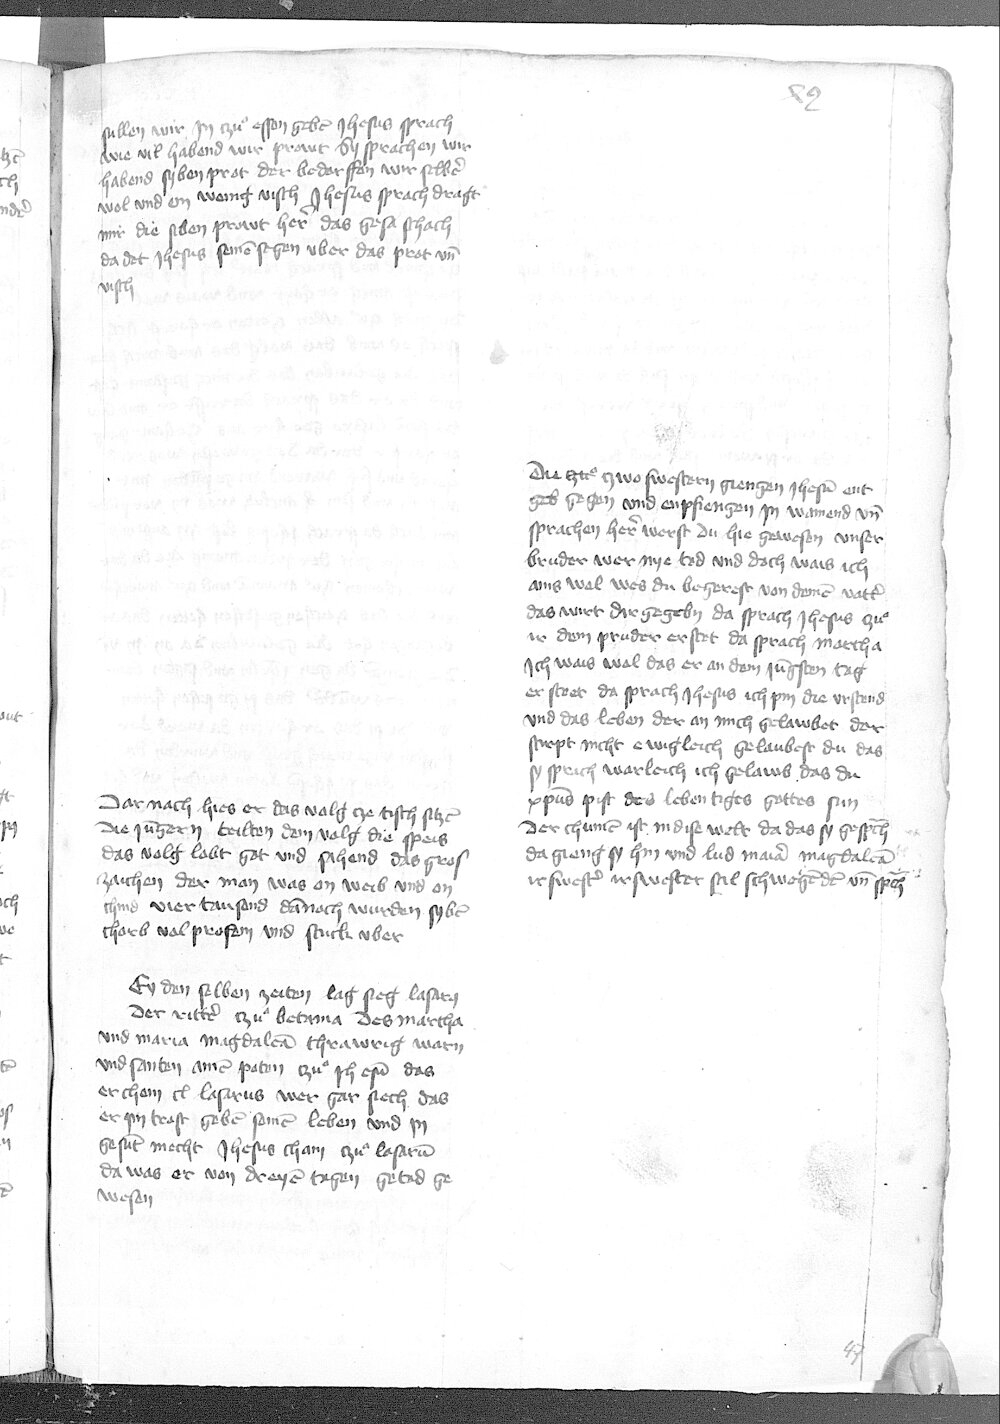 52
sullen wir In czuͦ essen gebē Jhesus sprach
wie vil habend wir prowt Sy sprachen wir
habend syben prot der bedorffen wir selbe᷑
wol und ein wenig visch Jhesus sprach dragt
mir die siben prowt her᷑ das gesa schach
da det Jhesus seinē segen vber das prot vn̄
visch
Dar nach hies er das volg cze tisch siczē
Die Jūgern teilten dem volg die speis
das volg lobt got und sahend das gros
zaichen der man was on weib und on
chind vier tausend dānach wurden sybē
chorb vol prosem und stuck vber
den selben zeiten lag sieg lasary
Der ritte᷑ czuͦ betania Des martha
und maria magdalēa thrawrig warn
und santen ainē poten czuͦ Jhesū das
er chem lasarus wer gar siech das
er im trost gebē seinē leben und in
gesūt mecht Jhesus cham czuͦ lasarū
da was er von dreyē tagen getod ge
wesen
Die czwo swestern giengen Jhesū ent
gegen und enpfiengen in wainend vn̄
sprachen her᷑ werst du hie gewesen unser
bruder wer nye tod und doch wais ich
ains wol wes du begerest von deinē vatt᷑
das wirt dir gegebn da sprach Jhesus czuͦ
ir dein pruder erstet da sprach martha
Ich wais wol das er an dem Jūgsten tag
ersteet da sprach Jhesus ich pin die urstend
und das leben der an mich gelawbet der
stirpt nicht ewigleich gelaubest du das
sy sprich warleich ich gelaub das du
xpūs pist des lebentiges gottes sun
Der chumē ist in dise welt da das sy gesp̄ch
da gieng sy hin und lud maia᷑ magdalēa
ir swest᷑ ir swester stil schwegēdē vn̄ sp̄ch
47